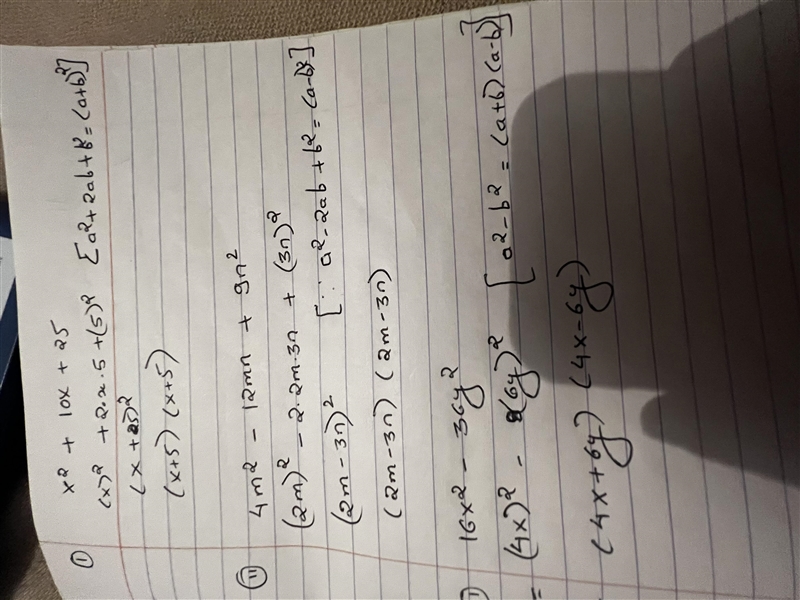 ① x² + 10x + 25
(x)² + 2·x·5 + (5)² [a² + 2ab + b² = (a+b)²]
(x + 5)²
(x+5) (x+5)
② 4m² - 12mn + 9n²
(2m)² - 2·2m·3n + (3n)²
(2m - 3n)² [∵ a² - 2ab + b² = (a-b)²]
(2m - 3n) (2m - 3n)
16x² - 36y²
= (4x)² - (6y)² [a² - b² = (a+b) (a-b)]
(4x + 6y) (4x - 6y)